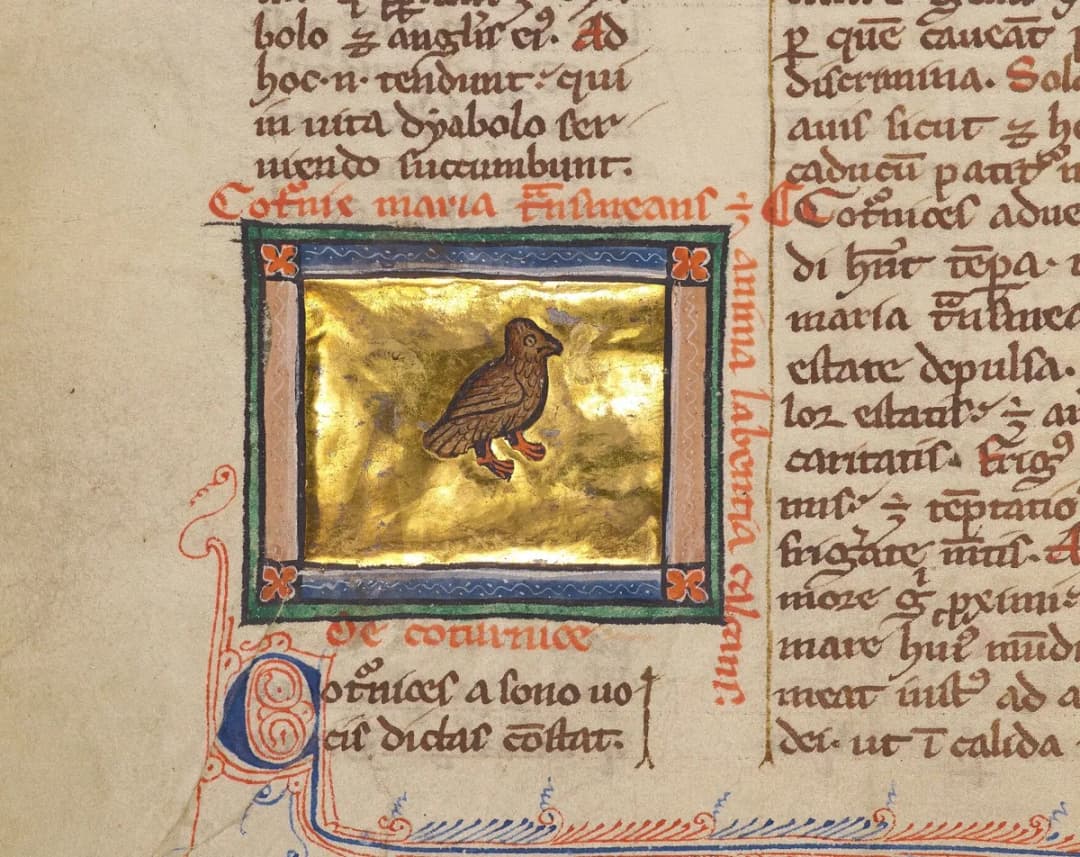 bolo ⁊ angl'is ei⁹. Ad
hoc .n. tendunt: qui
in uita dyabolo ser
uiendo succumbunt.
Cot͛nix maria t̄nsmeans
anima labentia calcant.
De coturnice
Cot͛nices a sono uo
cis dictas c̄stat.
ꝑ quē caueāt
discrimina. Sola
auis sicut ⁊ ho
caducū patit͛
Cot͛nices adue
di hn̄t tēpa.
maria t̄nsmea
estate depulsa.
lor estatis. ÷ au
caritatis. Frig⁹
mis. ÷ tēptatio
frig͛ate m̄tis. A
more g͛ pximi
mare hui⁹ mūdi
meat inst⁹ ad a
dei. ut ī calida